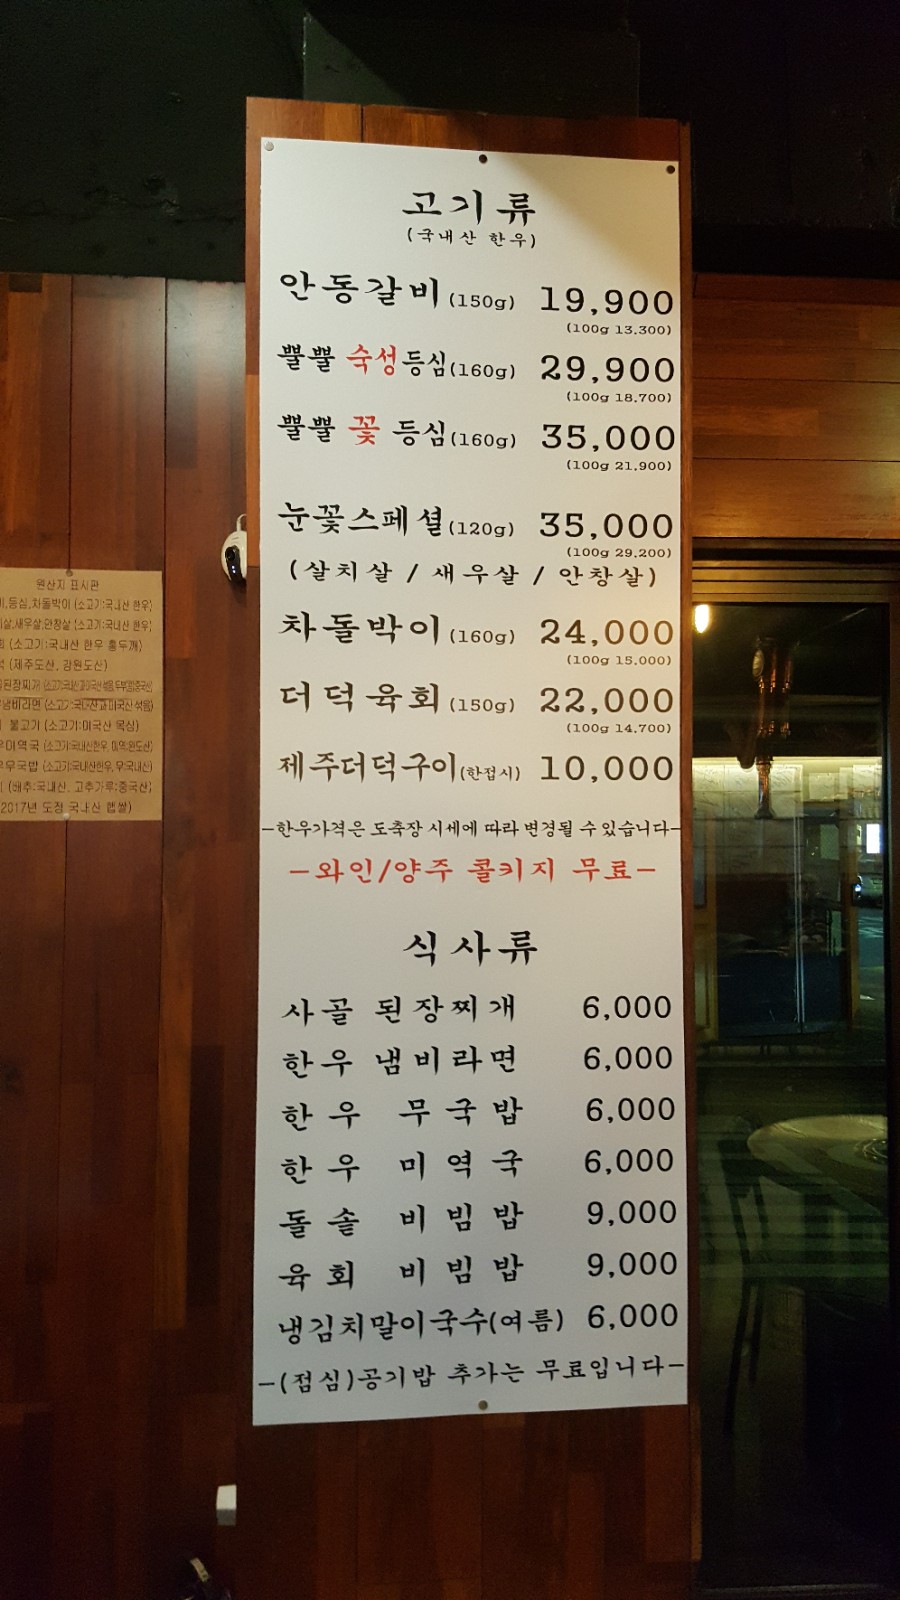 고기류
(국내산 한우)
안동갈비(150g) 19,900
(100g 13.300)
뿔뿔 숙성등심(160g) 29,900
(100g 18.700)
뿔뿔 꽃 등심(160g) 35,000
(100g 21.900)
눈꽃스페셜(120g) 35,000
(100g 29.200)
(살치살 / 새우살 / 안창살)
차돌박이(160g) 24,000
(100g 15.000)
더덕육회(150g) 22,000
(100g 14.700)
제주더덕구이(한접시) 10,000
-한우가격은 도축장 시세에 따라 변경될 수 있습니다-
-와인/양주 콜키지 무료-
식사류
사골 된장찌개 6,000
한우 냄비라면 6,000
한우 무국밥 6,000
한우 미역국 6,000
돌솥 비빔밥 9,000
육회 비빔밥 9,000
냉김치말이국수(여름) 6,000
-(점심)공기밥 추가는 무료입니다-
원산지 표시판
,등심,차돌박이 (소고기:국내산 한우)
살,새우살,안창살 (소고기:국내산 한우)
(소고기:국내산 한우 홍두깨)
(제주도산, 강원도산)
된장찌개
냄비라면 (소고기:국내산과 미국산 섞음)
불고기 (소고기:미국산 목심)
미역국 (소고기:국내산한우, 미역:완도산)
무국밥 (소고기:국내산한우, 무:국내산)
(배추:국내산, 고추가루:중국산)
2017년 도정 국내산 햅쌀)